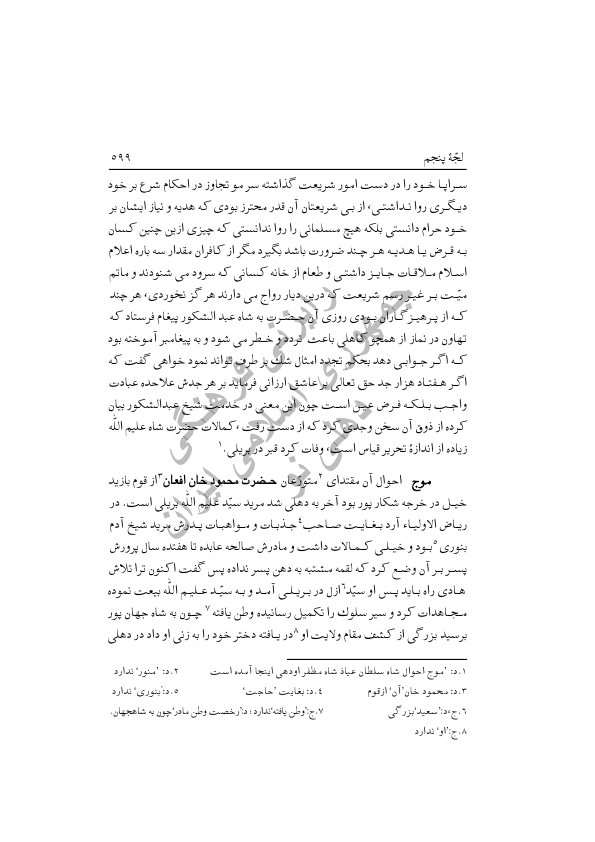 لجّهٔ پنجم ۵۹۹
سراپا خود را در دست امور شریعت گذاشته سر مو تجاوز در احکام شرع بر خود
دیگری روا نداشتی، از بی شریعتان آن قدر محترز بودی که هدیه و نیاز ایشان بر
خود حرام دانستی بلکه هیچ مسلمانی را روا ندانستی که چیزی ازین چنین کسان
به قرض یا هدیه هر چند ضرورت باشد بگیرد مگر از کافران مقدار سه باره اعلام
اسلام ملاقات جایز داشتی و طعام از خانه کسانی که سرود می شنودند و ماتم
میّت بر غیر رسم شریعت که درین دیار رواج می دارند هر گز نخوردی، هر چند
که از پرهیز گاران بودی روزی آن حضرت به شاه عبد الشکور پیغام فرستاد که
تهاون در نماز از همچو کاهلی باعث تردد و خطر می شود و به پیغامبر آموخته بود
که اگر جوابی دهد بحکم تجدد امثال شك بر طرف تواند نمود خواهی گفت که
اگر هفتاد هزار جد حق تعالی بر عاشق ارزانی فرماید بر هر جدش علاحده عبادت
واجب بلکه فرض عین است چون این معنی در خدمت شیخ عبدالشکور بیان
کرده از ذوق آن سخن وجدی کرد که از دست رفت، کمالات حضرت شاه علیم الله
زیاده از اندازهٔ تحریر قیاس است، وفات کرد قبر در بریلی.۱
موج احوال آن مقتدای ۲متورّعان حضرت محمود خان افغان۳از قوم بازید
خیل در خرجه شکار پور بود آخر به دهلی شد مرید سیّد علیم الله بریلی است. در
ریاض الاولیاء آرد بغایت صاحب۴جذبات و مواهبات پدرش مرید شیخ آدم
بنوری۵بود و خیلی کمالات داشت و مادرش صالحه عابده تا هفتده سال پرورش
پسر بر آن وضع کرد که لقمه مشتبه به دهن پسر نداده پس گفت اکنون ترا تلاش
هادی راه باید پس او سیّد۶ازل در بریلی آمد و به سیّد علیم الله بیعت نموده
مجاهدات کرد و سیر سلوك را تکمیل رسانیده وطن یافته۷ چون به شاه جهان پور
برسید بزرگی از کشف مقام ولایت او۸در یافته دختر خود را به زنی او داد در دهلی
۱.د: ’موج احوال شاه سلطان عیاذ شاه مظفر اودهی اینجا آمده است ۲.د: ’منور‘ ندارد
۳.د: محمود خان’آن‘ ازقوم ۴.د: بغایت ’حاجت‘ ۵.د:’بنوری‘ ندارد
۶.ج،د:’سعید‘بزرگی ۷.ج:’وطن یافته‘ندارد ؛ د:’رخصت وطن مادر‘چون به شاهجهان.
۸.ج:’او‘ ندارد
رایزنی فرهنگی
جمهوری اسلامی ایران
دهلی نو